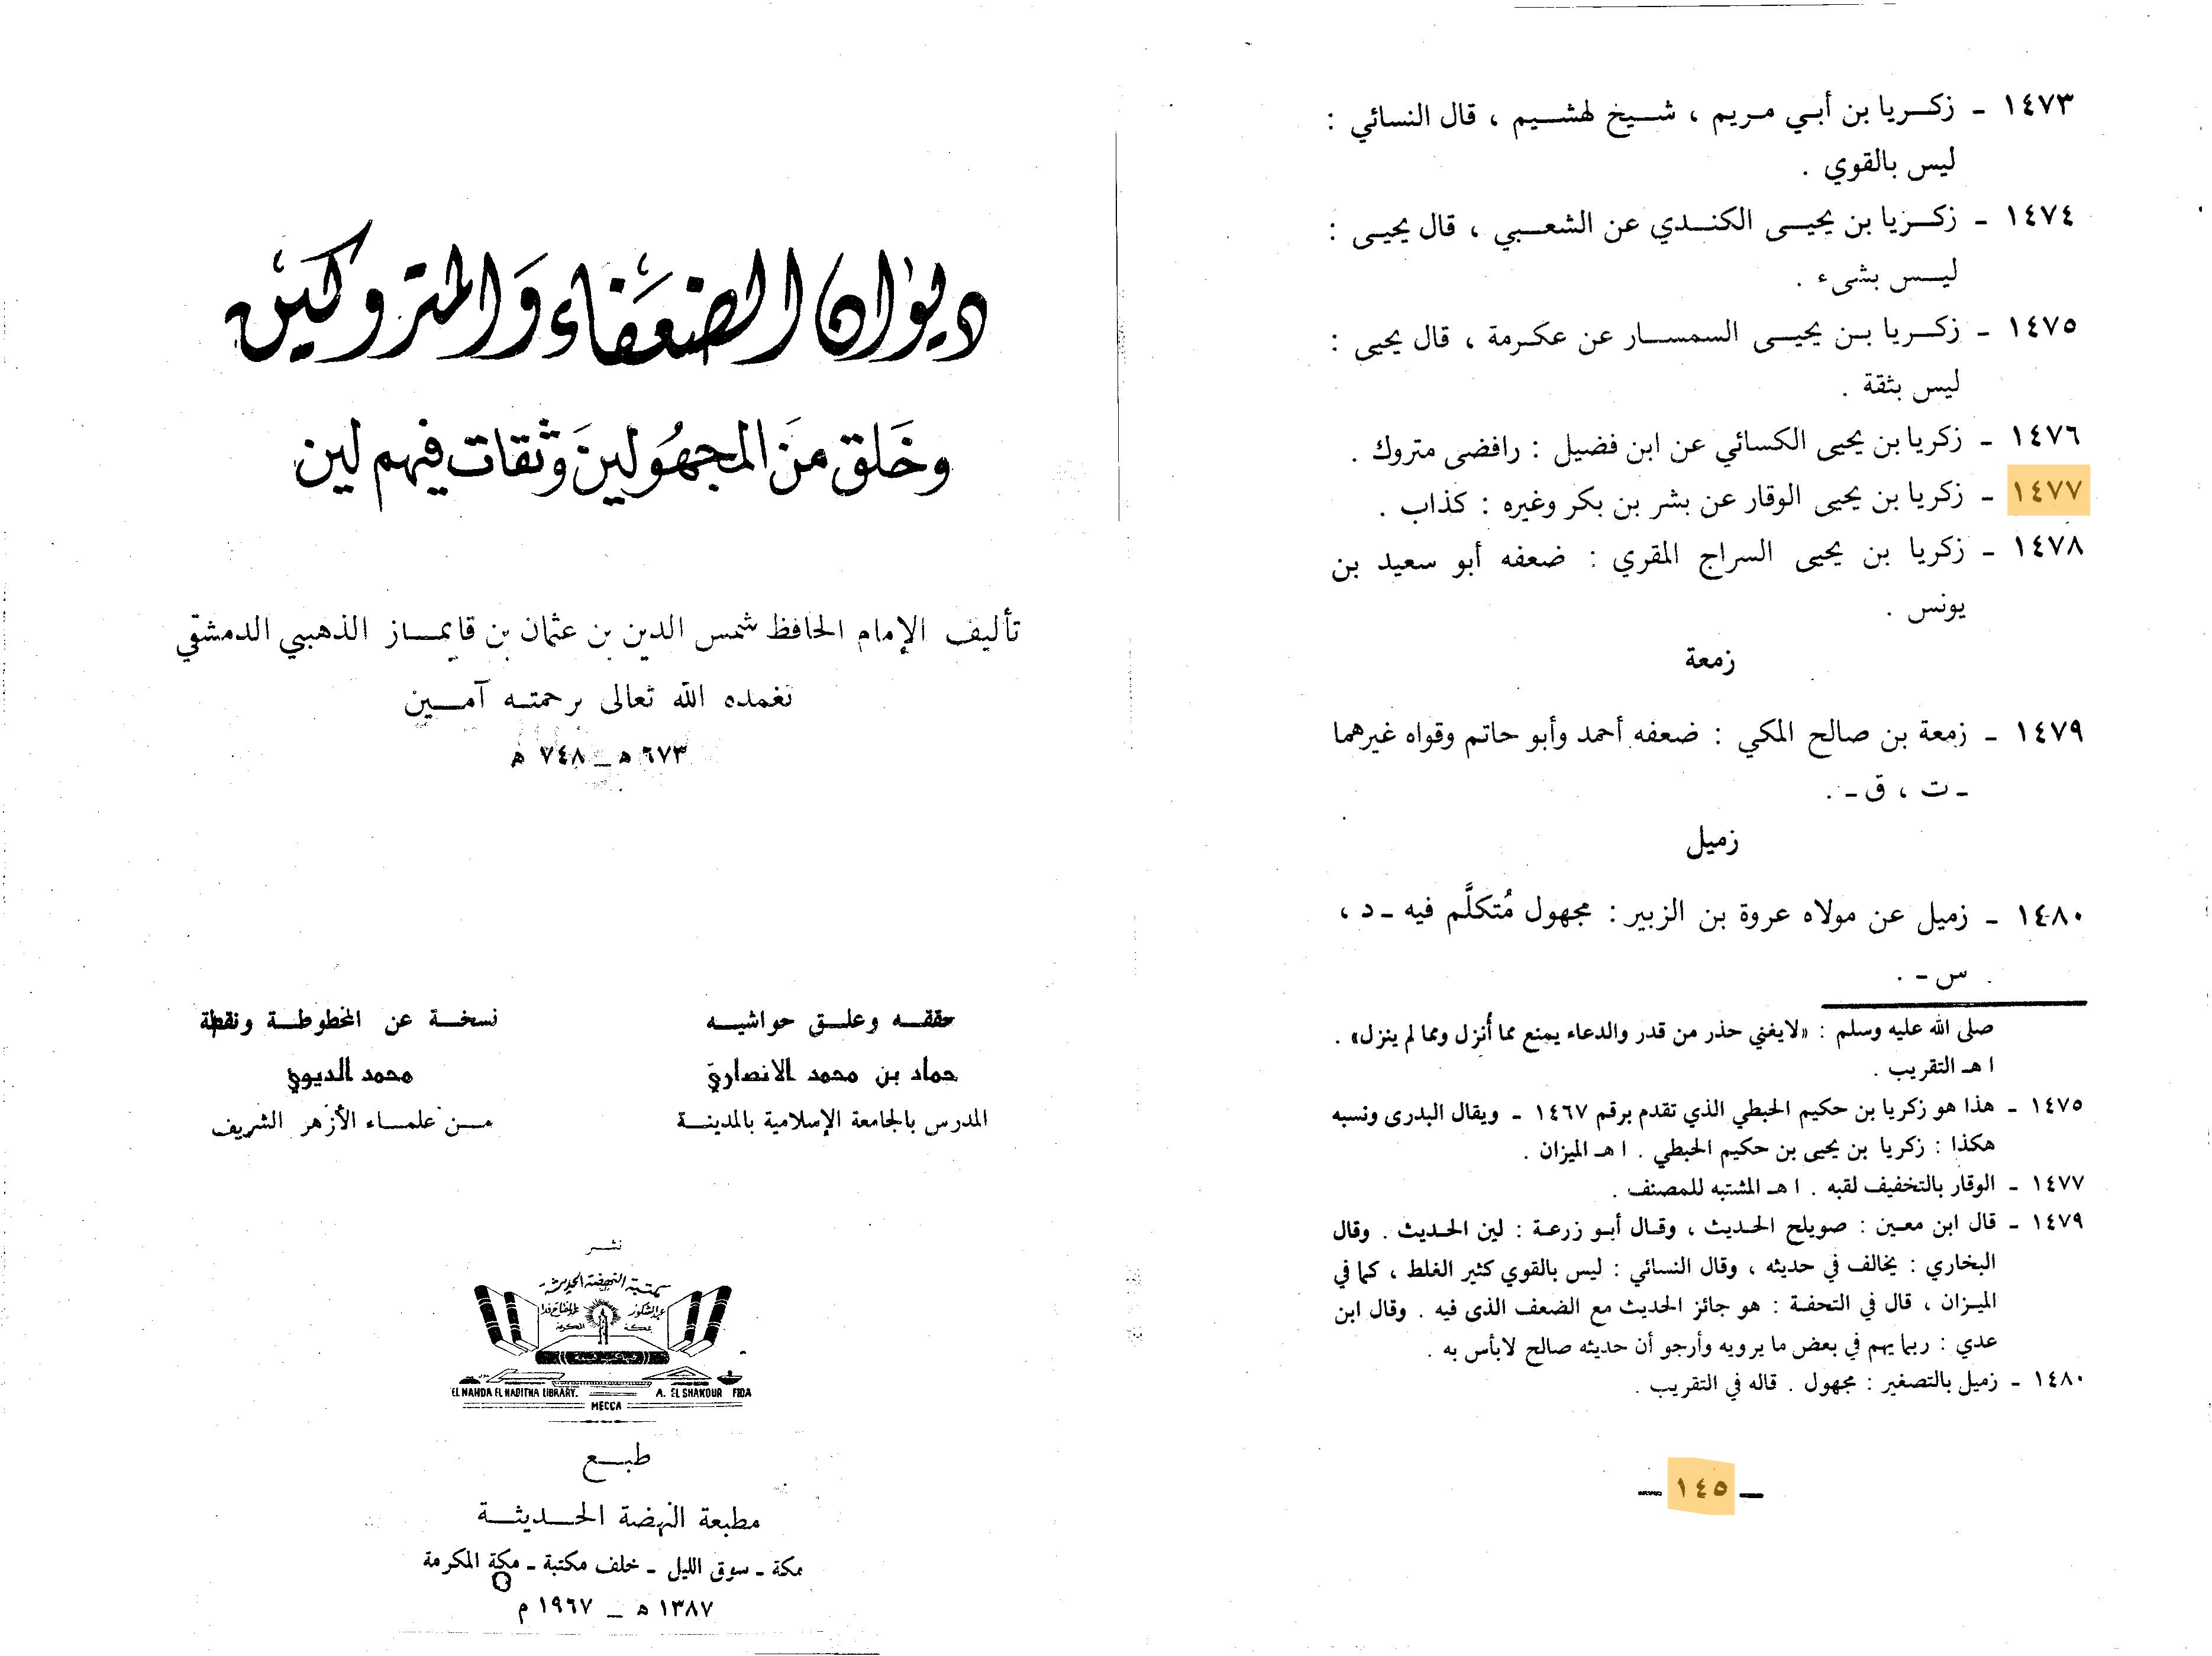 ١٤٧٣ ـ زكريا بن أبي مريم ، شيخ لهشيم ، قال النسائي :
ليس بالقوي .
١٤٧٤ ـ زكريا بن يحيى الكندي عن الشعبي ، قال يحيى :
ليس بشىء .
١٤٧٥ ـ زكريا بن يحيى السمسار عن عكرمة ، قال يحيى :
ليس بثقة .
١٤٧٦ ـ زكريا بن يحيى الكسائي عن ابن فضيل : رافضى متروك .
١٤٧٧ ـ زكريا بن يحيى الوقار عن بشر بن بكر وغيره : كذاب .
١٤٧٨ ـ زكريا بن يحيى السراج المقري : ضعفه أبو سعيد بن
يونس .
زمعة
١٤٧٩ ـ زمعة بن صالح المكي : ضعفه أحمد وأبو حاتم وقواه غيرهما
ـ ت ، ق ـ .
زميل
١٤٨٠ ـ زميل عن مولاه عروة بن الزبير : مجهول مُتكلَّم فيه ـ د ،
س ـ .
صلى الله عليه وسلم : «لايغني حذر من قدر والدعاء يمنع مما أُنزل ومما لم ينزل» .
ا هـ التقريب .
١٤٧٥ ـ هذا هو زكريا بن حكيم الحبطي الذي تقدم برقم ١٤٦٧ ـ ويقال البدرى ونسبه
هكذا : زكريا بن يحيى بن حكيم الحبطي . ا هـ الميزان .
١٤٧٧ ـ الوقار بالتخفيف لقبه . ا هـ المشتبه للمصنف .
١٤٧٩ ـ قال ابن معين : صويلح الحديث ، وقال أبو زرعة : لين الحديث . وقال
البخاري : يخالف في حديثه ، وقال النسائي : ليس بالقوي كثير الغلط ، كما في
الميزان ، قال في التحفة : هو جائز الحديث مع الضعف الذى فيه . وقال ابن
عدي : ربما يهم في بعض ما يرويه وأرجو أن حديثه صالح لابأس به .
١٤٨٠ ـ زميل بالتصغير : مجهول . قاله في التقريب .
ـ ١٤٥ ـ
ديوان الضعفاء والمتروكين
وخَلق منَ المجهُولينَ وثقات فيهم لين
تأليف الإمام الحافظ شمس الدين بن عثمان بن قايماز الذهبي الدمشقي
تغمده الله تعالى برحمته آمين
٦٧٣ هـ ـ ٧٤٨ هـ
حققه وعلق حواشيه
حماد بن محمد الانصاري
المدرس بالجامعة الإسلامية بالمدينة
نسخة عن المخطوطة ونقطة
محمد الديوي
من علماء الأزهر الشريف
نشر
مكتبة النهضة الحديثة
عبد الشكور عبد الفتاح فدا
مكة المكرمة
EL NAHDA EL HADITHA LIBRARY. A. EL SHAKOUR FIDA
MECCA
طبع
مطبعة النهضة الحديثة
مكة ـ سوق الليل ـ خلف مكتبة ـ مكة المكرمة
١٣٨٧ هـ ـ ١٩٦٧ م